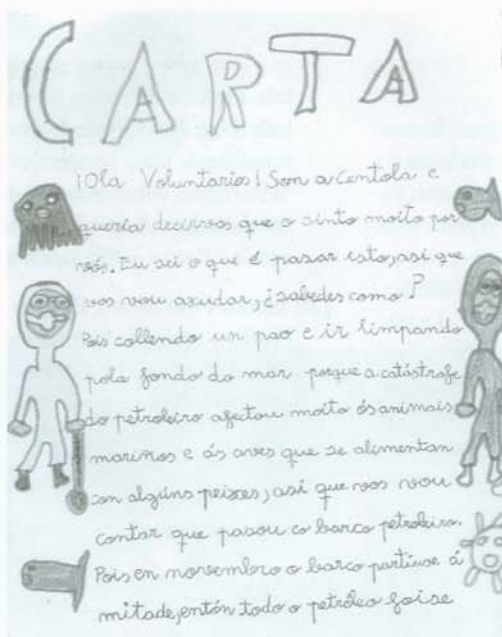 CARTA
¡Ola Voluntarios! Son a Centola e
quería decirvos que o sinto moito por
vós. Eu sei o que é pasar isto, así que
vos vou axudar, ¿sabedes como?
Pois collendo un pao e ir limpando
pola fondo do mar porque a catástrofe
do petroleiro afectou moito ós animais
mariños e ás aves que se alimentan
con algúns peixes, así que vos vou
contar que pasou co barco petroleiro.
Pois en novembro o barco partiuse á
mitade, entón todo o petróleo foise